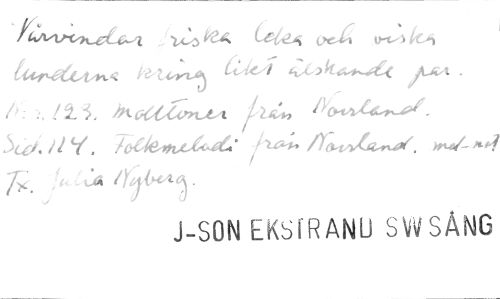 Vårvindar friska leka och viska
lunderna kring likt älskande par.
Nr. 123. Molltoner från Norrland.
Sid. 114. Folkmelodi från Norrland. mel-not
Tx. Julia Nyberg.
J-SON EKSTRAND SWSÅNG